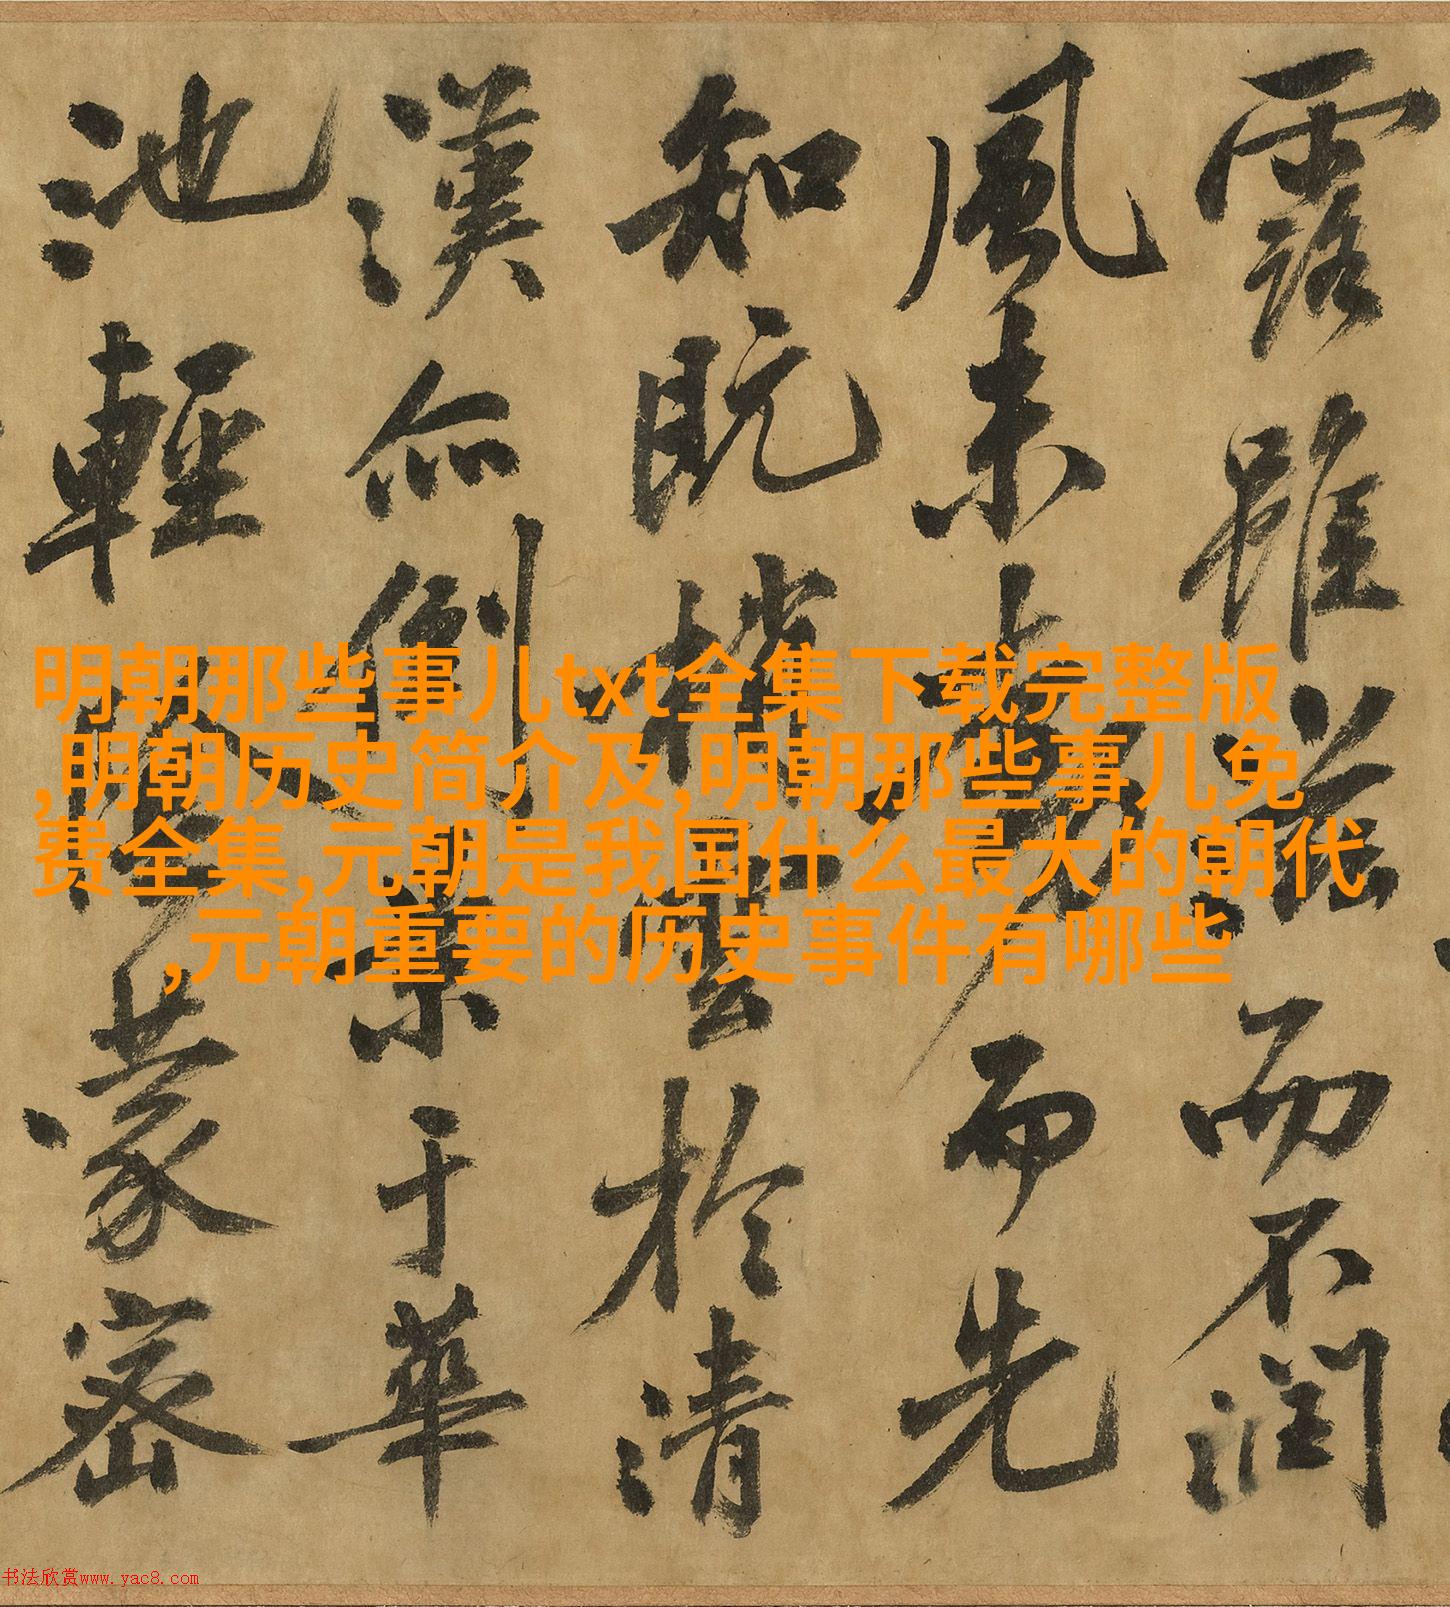 露雖滋而不潤
風未動而先
知既梢雲於清
漢亦倒景于華
池輕蒙密
明朝那些事儿txt全集下载完整版
,明朝历史简介及,明朝那些事儿免
费全集,元朝是我国什么最大的朝代
,元朝重要的历史事件有哪些
书法欣赏www.yac8.com